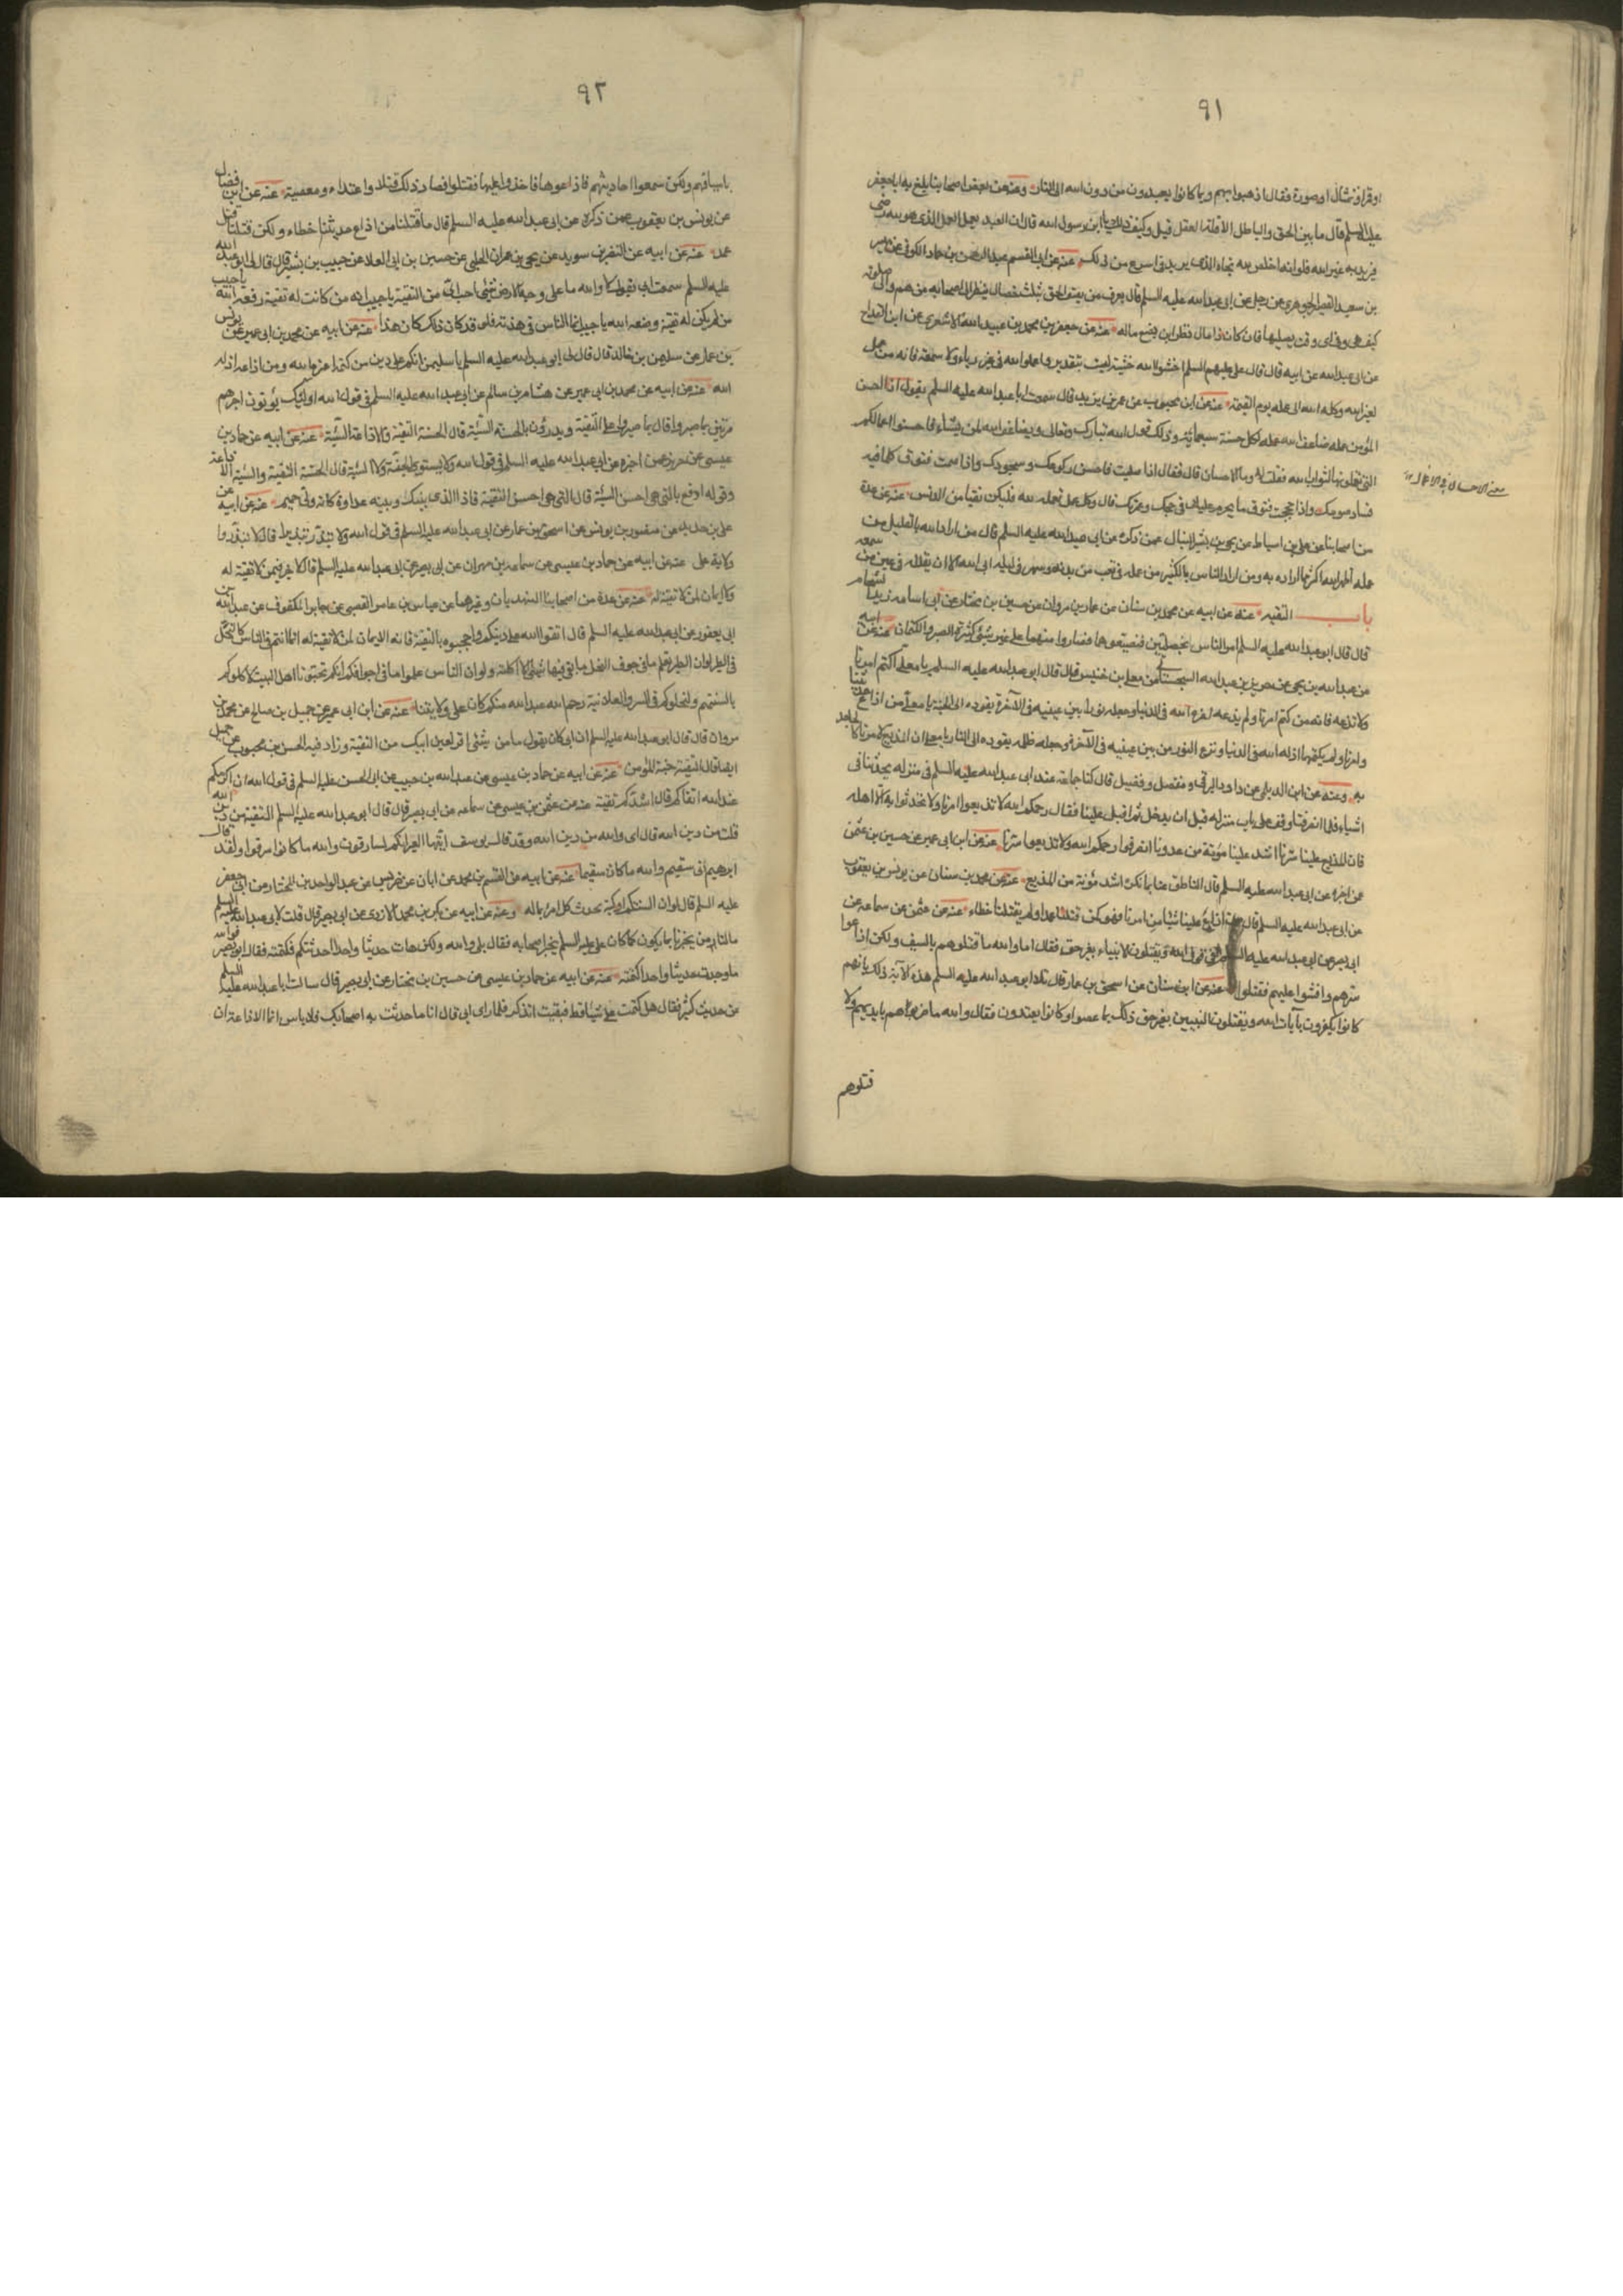 ٩١
او قراو مثال او صورة فقال اذهبوا بهم وبما كانوا يعبدون من دون الله الى النار وعنه عن بعض اصحابنا بلغ به ابا جعفر
عليه السلم قال ما بين الحق والباطل الا قلة العقل قيل وكيف ذلك يا ابن رسول الله قال ان العبد يعمل العمل الذي هو لله رضى
فيريد به غير الله فلو انه اخلص لله لجاءه الذي يريد في اسرع من ذلك عنه عن ابي القسم عبد الرحمن بن حماد الكوفي عن ميسر
بن سعيد القصير الجوهري عن رجل عن ابي عبد الله عليه السلم قال يعرف من يصف الحق بثلث خصال ينظر الى اصحابه من هم والى صلوته
كيف هي وفي اي وقت يصليها فان كان ذا مال نظر اين يضع ماله عنه عن جعفر بن محمد بن عبيد الله الاشعري عن ابن القداح
عن ابي عبد الله عن ابيه قال قال علي عليهم السلم اخشوا الله خشية ليست بتعذير واعملوا لله في غير رياء ولا سمعة فانه من عمل
لغير الله وكله الله الى عمله يوم القيمة عنه عن ابن محبوب عن عمر بن يزيد قال سمعت ابا عبد الله عليه السلم يقول اذا احسن
المؤمن عمله ضاعف الله عمله لكل حسنة سبعمائة وذلك قول الله تبارك وتعالى ويضاعف الله لمن يشاء فاحسنوا اعمالكم
التي تعملونها لثواب الله فقلت له وما الاحسان قال فقال اذا صليت فاحسن ركوعك وسجودك واذا صمت فتوق كلما فيه
معنى الاحسان في الاعمال
فساد صومك واذا حججت فتوق ما يحرم عليك في حجك وعمرتك قال وكل عمل تعمله لله فليكن نقيا من الدنس عنه عن عدة
من اصحابنا عن علي بن اسباط عن يحيى بن بشير النبال عمن ذكره عن ابي عبد الله عليه السلم قال من اراد الله بالقليل من
عمله اظهر الله اكثر مما اراده به ومن اراد الناس بالكثير من عمله في تعب من بدنه وسهر في ليله ابى الله الا ان يقلله في عين من سمعه
باب التقيه عنه عن ابيه عن محمد بن سنان عن عمار بن مروان عن حسين بن مختار عن ابي اسامه زيد الشحام
قال قال ابو عبد الله عليه السلم امر الناس بخصلتين فضيعوهما فصاروا منهما على غير شيء كثرة الصبر والكتمان عنه عن ابيه
عن عبد الله بن يحيى عن حريز بن عبد الله السجستاني عن معلى بن خنيس قال قال ابو عبد الله عليه السلم يا معلى اكتم امرنا
ولا تذعه فانه من كتم امرنا ولم يذعه اعزه الله في الدنيا وجعله نورا بين عينيه في الآخرة يقوده الى الجنة يا معلى من اذاع حديثنا
وامرنا ولم يكتمها اذله الله في الدنيا ونزع النور من بين عينيه في الآخرة وجعله ظلمة يقوده الى النار يا معلى ان المذيع لامرنا كالجاحد
به وعنه عن ابن الديلمي عن داود الرقي ومفضل وفضيل قال كنا جماعة عند ابي عبد الله عليه السلم في منزله يحدثنا في
اشياء فلما انصرفنا وقف على باب منزله قبل ان يدخل ثم اقبل علينا فقال رحمكم الله لا تذيعوا امرنا ولا تحدثوا به الا اهله
فان المذيع علينا سرنا اشد علينا مؤنة من عدونا انصرفوا رحمكم الله ولا تذيعوا سرنا عنه عن ابن ابي عمير عن حسين بن عثمن
عن اخبره عن ابي عبد الله عليه السلم قال الناطق عنا بما نكره اشد مؤنة من المذيع عنه عن محمد بن سنان عن يونس بن يعقوب
عن ابي عبد الله عليه السلم قال من اذاع علينا شيئا من امرنا فهو كمن قتلنا عمدا ولم يقتلنا خطاء عنه عن عثمن عن سماعه عن
ابي بصير عن ابي عبد الله عليه السلم في قول الله ويقتلون الانبياء بغير حق فقال اما والله ما قتلوهم بالسيف ولكن اذاعوا
سرهم وافشوا عليهم فقتلوا عنه عن ابن سنان عن اسحق بن عمار قال تلا ابو عبد الله عليه السلم هذه الآية ذلك بانهم
كانوا يكفرون بآيات الله ويقتلون النبيين بغير حق ذلك بما عصوا وكانوا يعتدون فقال والله ما ضربوهم بايديهم ولا
قتلوهم
٩٢
باسيافهم ولكن سمعوا احاديثهم فاذاعوها فاخذوا عليها فقتلوا فصار ذلك قتلا واعتداء ومعصية عنه عن ابن فضال
عن يونس بن يعقوب عمن ذكره عن ابي عبد الله عليه السلم قال ما قتلنا من اذاع حديثنا خطاء ولكن قتلنا قتل
عمد عنه عن ابيه عن النضر بن سويد عن يحيى بن عمران الحلبي عن حسين بن ابي العلا عن حبيب بن بشير قال قال لي ابو عبد الله
عليه السلم سمعت ابي يقول لا والله ما على وجه الارض شئ احب الي من التقية يا حبيب انه من كانت له تقية رفعه الله يا حبيب
من لم يكن له تقية وضعه الله يا حبيب انما الناس في هدنة فلو قد كان ذلك كان هذا عنه عن ابيه عن محمد بن ابي عمير عن يونس
بن عمار عن سليمن بن خالد قال قال لي ابو عبد الله عليه السلم يا سليمن انكم على دين من كتمه اعزه الله ومن اذاعه اذله
الله عنه عن ابيه عن محمد بن ابي عمير عن هشام بن سالم عن ابي عبد الله عليه السلم في قول الله اولئك يؤتون اجرهم
مرتين بما صبروا قال بما صبروا على التقية ويدرؤن بالحسنة السيئة قال الحسنة التقية والاذاعة السيئة عنه عن ابيه عن حماد بن
عيسى عن حريز عمن اخبره عن ابي عبد الله عليه السلم في قول الله ولا تستوى الحسنة ولا السيئة قال الحسنة التقية والسيئة الاذاعة
وقوله ادفع بالتي هي احسن السيئة قال التي هي احسن التقية فاذا الذي بينك وبينه عداوة كانه ولي حميم عنه عن ابيه عن
علي بن حديد عن منصور بن يونس عن اسحق بن عمار عن ابي عبد الله عليه السلم في قول الله ولا تبذر تبذيرا قال لا تبذروا
ولاية علي عنه عن ابيه عن حماد بن عيسى عن سماعه بن مهران عن ابي بصير عن ابي عبد الله عليه السلم قال لا خير فيمن لا تقية له
ولا ايمان لمن لا تقية له عنه عن عدة من اصحابنا النهديان وغيرهما عن عباس بن عامر القصبي عن جابر المكفوف عن عبد الله بن
ابي يعفور عن ابي عبد الله عليه السلم قال اتقوا الله على دينكم واحجبوه بالتقية فانه لا ايمان لمن لا تقية له انما انتم في الناس كالنحل
في الطير لو ان الطير تعلم ما في جوف النحل ما بقي فيها شئ الا اكلته ولو ان الناس علموا ما في اجوافكم انكم تحبونا اهل البيت لاكلوكم
بالسنتهم ولنحلوكم في السر والعلانية رحم الله عبدا منكم كان على ولايتنا عنه عن ابن ابي عمير عن جميل بن صالح عن محمد بن
مروان قال قال ابو عبد الله عليه السلم ان ابي كان يقول ما من شئ اقر لعين ابيك من التقية وزاد فيه الحسن بن محبوب عن جميل
ايضا قال التقية جنة المؤمن عنه عن ابيه عن حماد بن عيسى عن عبد الله بن حبيب عن ابي الحسن عليه السلم في قول الله ان اكرمكم
عند الله اتقاكم قال اشدكم تقية عنه عن عثمن بن عيسى عن سماعه عن ابي بصير قال قال ابو عبد الله عليه السلم التقية من دين الله
قلت من دين الله قال اي والله من دين الله وقد قال يوسف ايتها العير انكم لسارقون والله ما كانوا سرقوا ولقد قال
ابرهيم اني سقيم والله ما كان سقيما عنه عن ابيه عن القسم بن محمد عن ابان عن ضريس عن عبد الواحد بن المختار عن ابي جعفر
عليه السلم قال لو ان لالسنتكم اوكية لحدث كل امرئ بما له وعنه عن ابيه عن بكر بن محمد الازدي عن ابي بصير قال قلت لابي عبد الله عليه السلم
ما لنا من يخبرنا بما يكون كما كان علي عليه السلم يخبر اصحابه فقال بلى والله ولكن هات حديثا واحدا حدثتكم فكتمته فقال ابو بصير فوالله
ما وجدت حديثا واحدا كتمته عنه عن ابيه عن حماد بن عيسى عن حسين بن مختار عن ابي بصير قال سالت ابا عبد الله عليه السلم
عن حديث كثير فقال هل كتمت علي شيئا قط فبقيت اتذكر فلما راى ما بي قال اما ما حدثت به اصحابك فلا باس انما الاذاعة ان